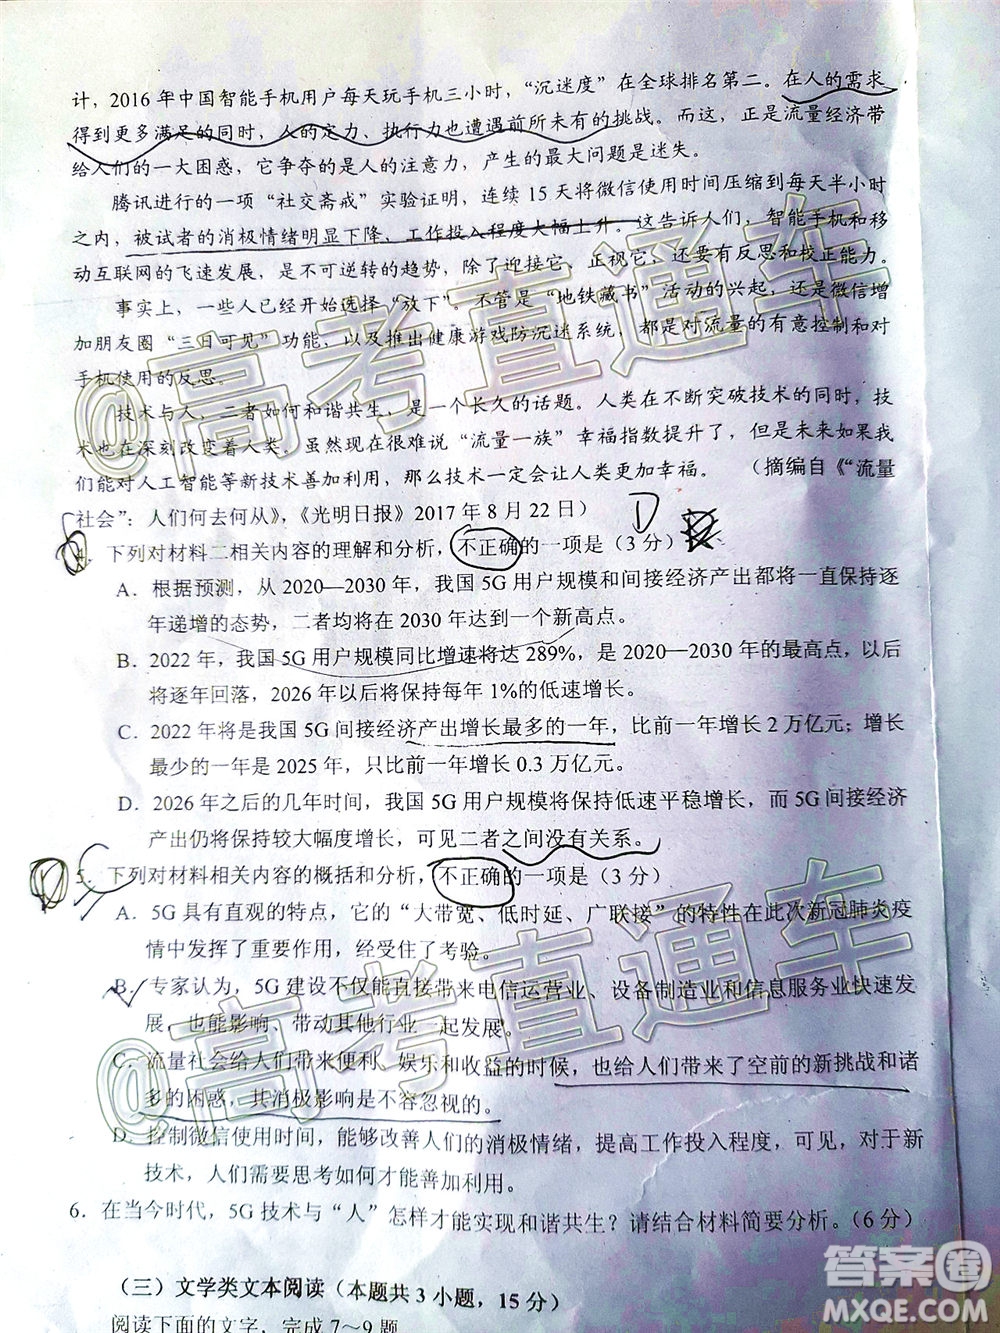 计，2016 年中国智能手机用户每天玩手机三小时，“沉迷度”在全球排名第二。在人的需求
得到更多满足的同时，人的定力、执行力也遭遇前所未有的挑战。而这，正是流量经济带
给人们的一大困惑，它争夺的是人的注意力，产生的最大问题是迷失。
腾讯进行的一项“社交斋戒”实验证明，连续 15 天将微信使用时间压缩到每天半小时
之内，被试者的消极情绪明显下降，工作投入程度大幅上升。这告诉人们，智能手机和移
动互联网的飞速发展，是不可逆转的趋势，除了迎接它、正视它，还要有反思和校正能力。
事实上，一些人已经开始选择“放下”。不管是“地铁藏书”活动的兴起，还是微信增
加朋友圈“三日可见”功能，以及推出健康游戏防沉迷系统，都是对流量的有意控制和对
手机使用的反思。
技术与人，二者如何和谐共生，是一个长久的话题。人类在不断突破技术的同时，技
术也在深刻改变着人类。虽然现在很难说“流量一族”幸福指数提升了，但是未来如果我
们能对人工智能等新技术善加利用，那么技术一定会让人类更加幸福。（摘编自《“流量
社会”：人们何去何从》，《光明日报》2017 年 8 月 22 日）
D
4．下列对材料二相关内容的理解和分析，不正确的一项是（3 分）
A．根据预测，从 2020—2030 年，我国 5G 用户规模和间接经济产出都将一直保持逐
年递增的态势，二者均将在 2030 年达到一个新高点。
B．2022 年，我国 5G 用户规模同比增速将达 289%，是 2020—2030 年的最高点，以后
将逐年回落，2026 年以后将保持每年 1%的低速增长。
C．2022 年将是我国 5G 间接经济产出增长最多的一年，比前一年增长 2 万亿元；增长
最少的一年是 2025 年，只比前一年增长 0.3 万亿元。
D．2026 年之后的几年时间，我国 5G 用户规模将保持低速平稳增长，而 5G 间接经济
产出仍将保持较大幅度增长，可见二者之间没有关系。
5．下列对材料相关内容的概括和分析，不正确的一项是（3 分）
A．5G 具有直观的特点，它的“大带宽、低时延、广联接”的特性在此次新冠肺炎疫
情中发挥了重要作用，经受住了考验。
B．专家认为，5G 建设不仅能直接带来电信运营业、设备制造业和信息服务业快速发
展，也能影响、带动其他行业一起发展。
C．流量社会给人们带来便利、娱乐和收益的时候，也给人们带来了空前的新挑战和诸
多的困惑，其消极影响是不容忽视的。
D．控制微信使用时间，能够改善人们的消极情绪，提高工作投入程度，可见，对于新
技术，人们需要思考如何才能善加利用。
6．在当今时代，5G 技术与“人”怎样才能实现和谐共生？请结合材料简要分析。（6 分）
（三）文学类文本阅读（本题共 3 小题，15 分）
阅读下面的文字，完成 7～9 题
@高考直通车
@高考直通车
答案圈
MXQE.COM